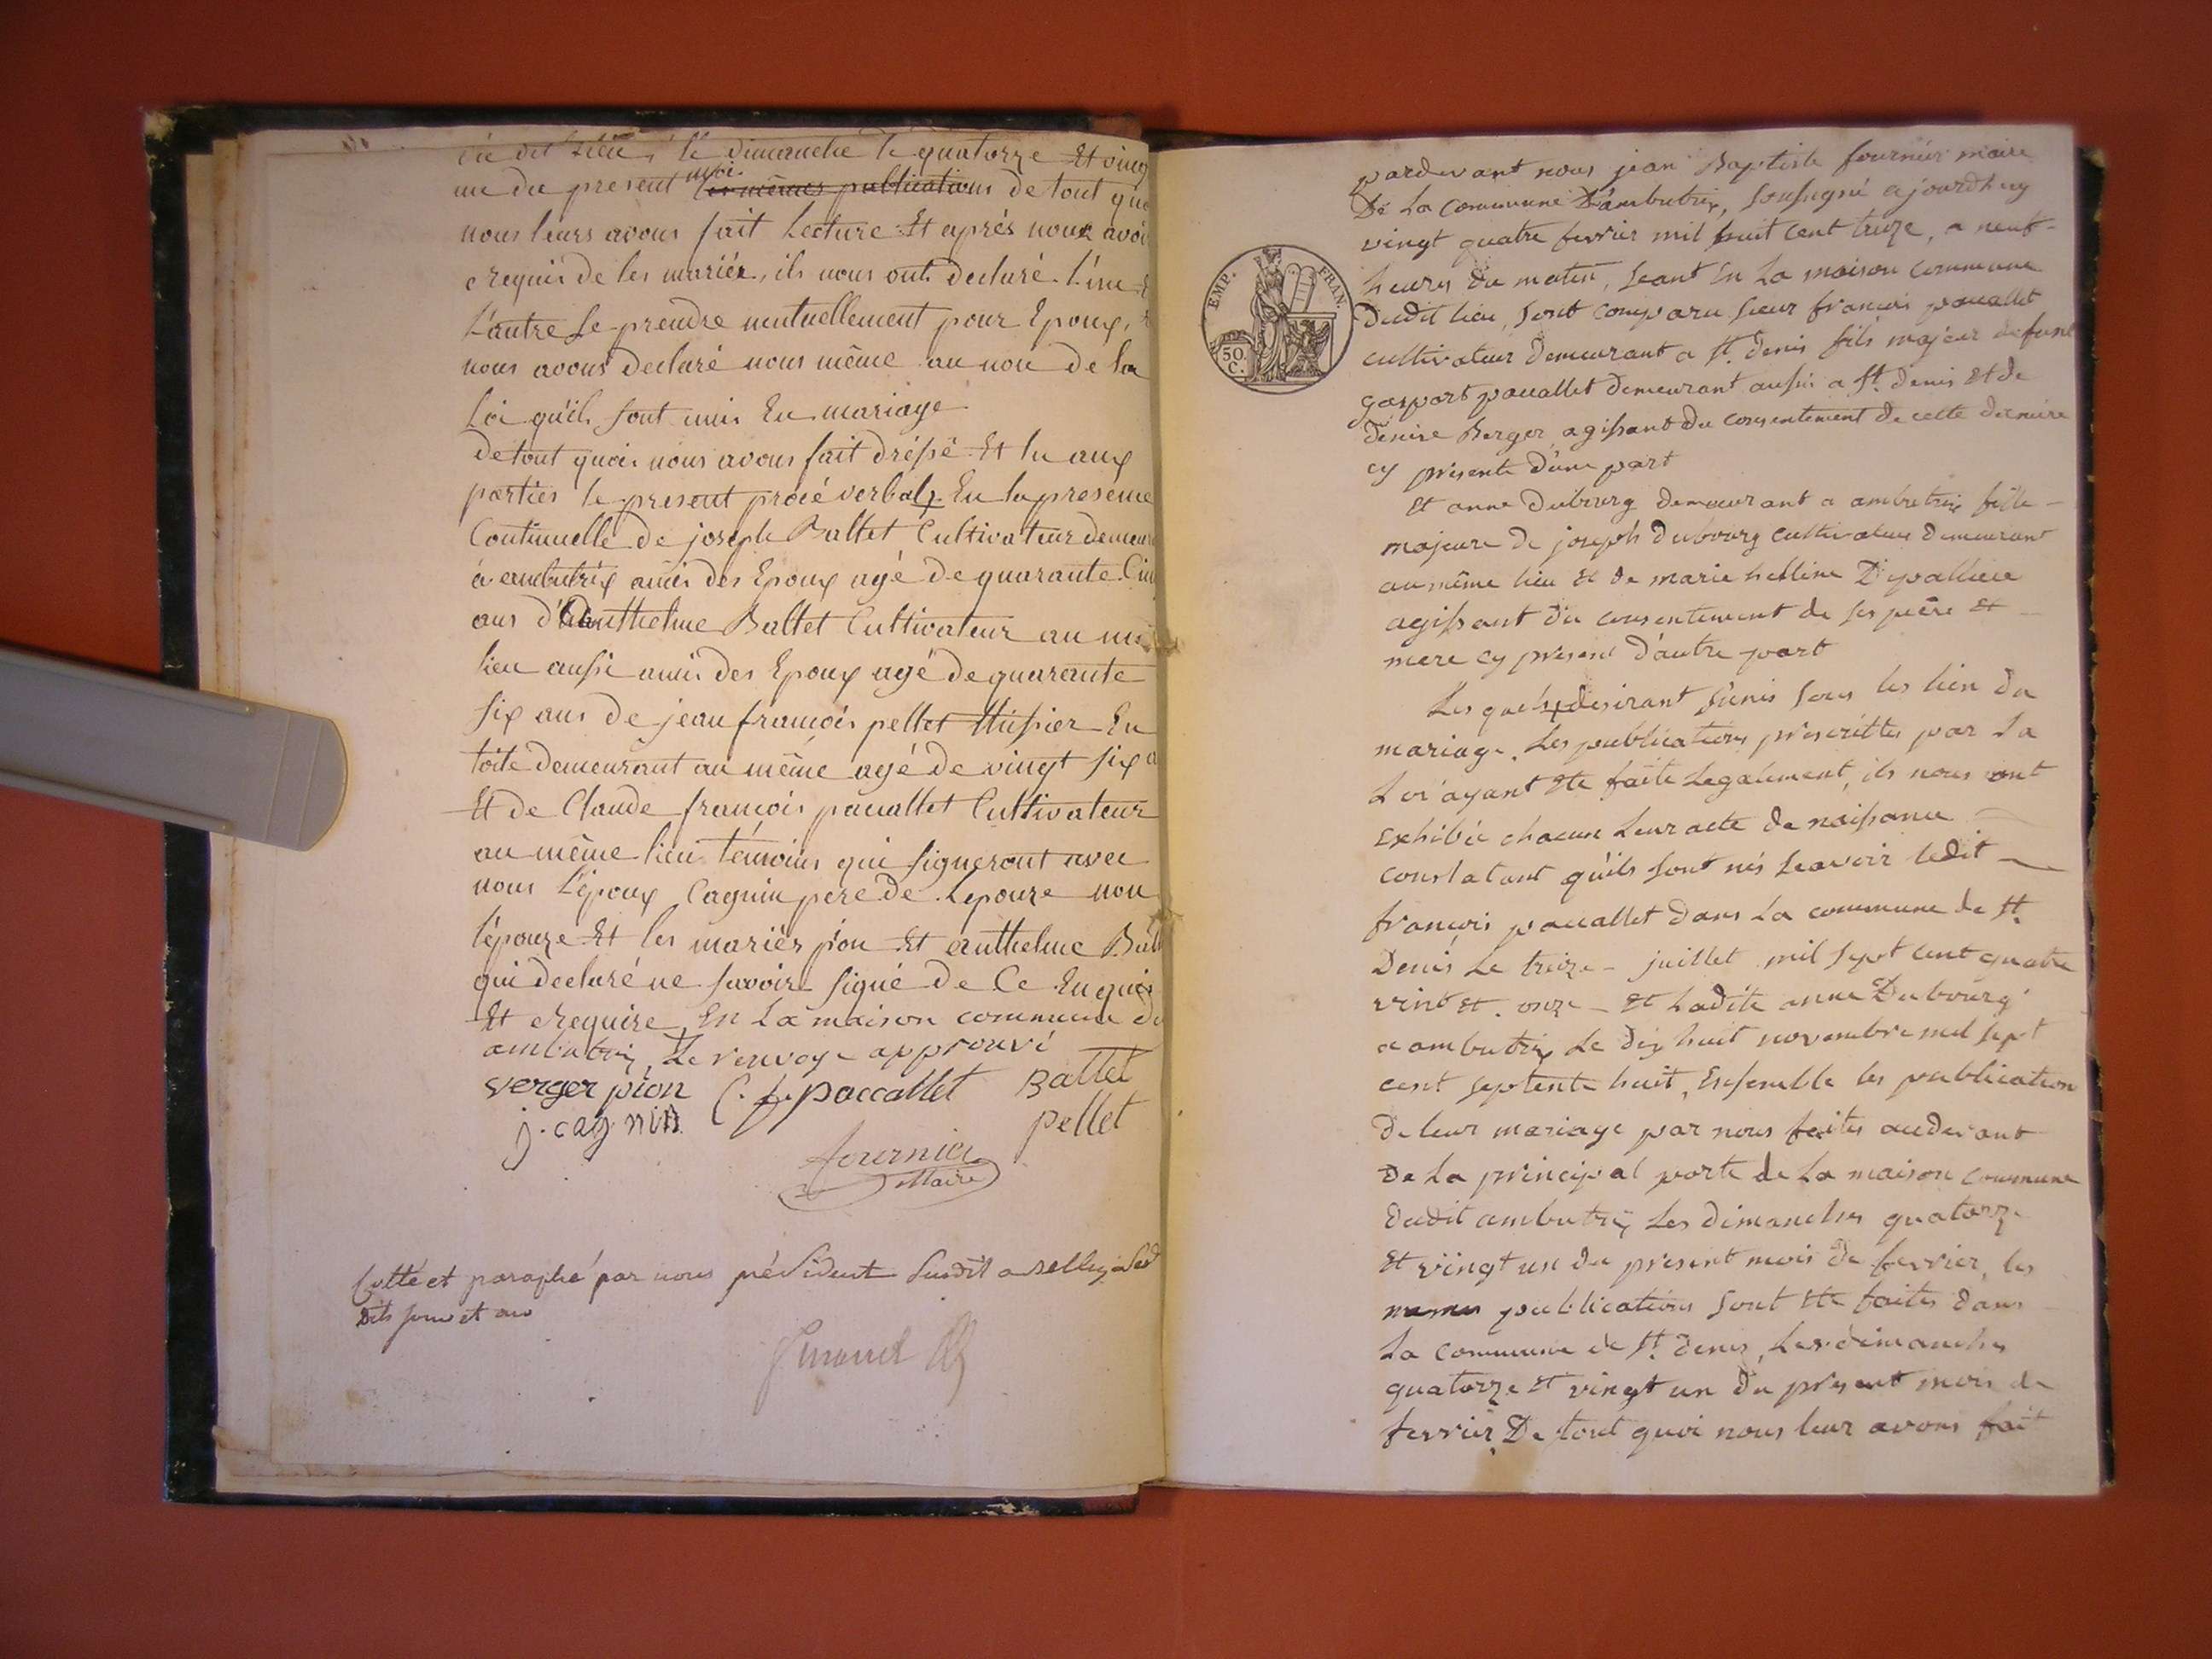 dit lieu, le dimanche le quatorze Et ving
un du present moi ces mêmes publications de tout quo
nous leurs avons fait Lecture Et aprés nous avoi
requis de les mariér, ils nous onts declaré L'une E
L'autre Se prendre mutuellement pour Epoux,
nous avons Declaré nous même au nom de la
Loi qu'ils sont unis En mariage
De tout quoi nous avons fait dréssé Et lu aux
parties le present procé verbal, En la presence
Continuelle de joseph Ballet Cultivateur demeur
à ambutrix amis des Epoux agé de quarante Cin
ans d'anthelme Ballet Cultivateur au mê
lieu aussi amis des Epoux agé de quarante
six ans de jean françois pellet En
toile demeurant au même agé de vingt six a
Et de Claude françois pacallet Cultivateur
au même lieu témoins qui signeront avec
nous L'époux Cagnin pere de Lepouze non
l'épouze Et les mariér pion Et anthelme Ball
qui declaré ne savoir signé de Ce Enquis
Et requise, En La maison commune du
ambutrix, Le renvoye approuvé
verger pion C. f. paccallet Ballet
j. cagnin pellet
fournier
Maire
Cotté et paraphé par nous président susdit a Belley les
dits jour et an
EMP. FRAN.
50.
C.
pardevant nous jean Baptiste fournier maire
De La Commune D'ambutrix, soussigné ajourdhuy
vingt quatre fevrier mil huit cent treize, a neuf
heures du matin, seant En La maison commune
Dudit lieu, sont comparu sieur françois pacallet
cultivateur Demeurant a St. Denis fils majeur de funt
gaspart pacallet demeurant aussi a St. Denis Et de
Denise Berger, agissant du consentement de cette derniere
cy présente d'une part
Et anne Dubourg demeurant a ambutrix fille
majeure de joseph Dubourg cultivateur Demeurant
au même lieu Et de marie helline Depalliere
agissant du consentement de ses peère Et
mere cy present d'autre part
Les quels desirant s'unis sous les lien du
mariage. Les publications prescrittes par La
Loi ayant Eté faite Legalement, ils nous ont
Exhibée chacun Leur acte de naissance
constatant qu'ils sont nés seavoir ledit
françois pacallet dans La commune de St.
Denis Le treize juillet mil sept cent quatre
vint Et onze Et Ladite anne Dubourg
a ambutrix Le dix huit novembre mil sept
cent septente huit, Ensemble les publication
De leur mariage par nous faites audevant
De La principal porte de La maison commune
Dudit ambutrix, Les dimanches quatorze
Et vingt un du présent mois de fevrier, les
mêmes publications sont Eté faites dans
La commune de St. Denis, Les dimanches
quatorze Et vingt un du présent mois de
fevrier, De tout quoi nous leur avons fait